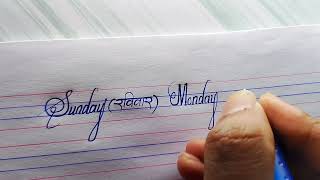 Sunday (रविवार) Monday